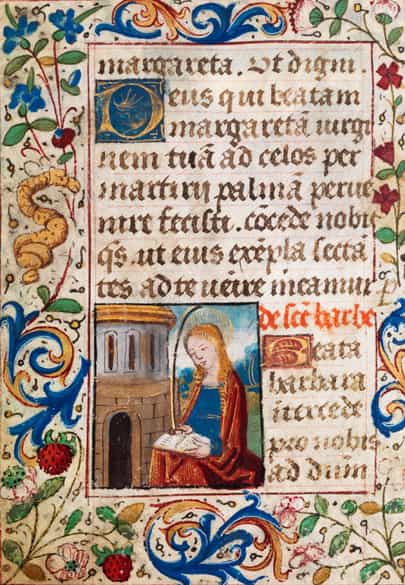 margareta. Ut digni
Deus qui beatam
margaretā uirgi
nem tuā ad celos per
martirij palmā perue
nire fecisti. cōcede nobis
q̄s. ut eius exēpla secta
tes ad te ueīre meamur p
de scē barbe
Beata
barbara
ītercede
pro nobis
ad dūm